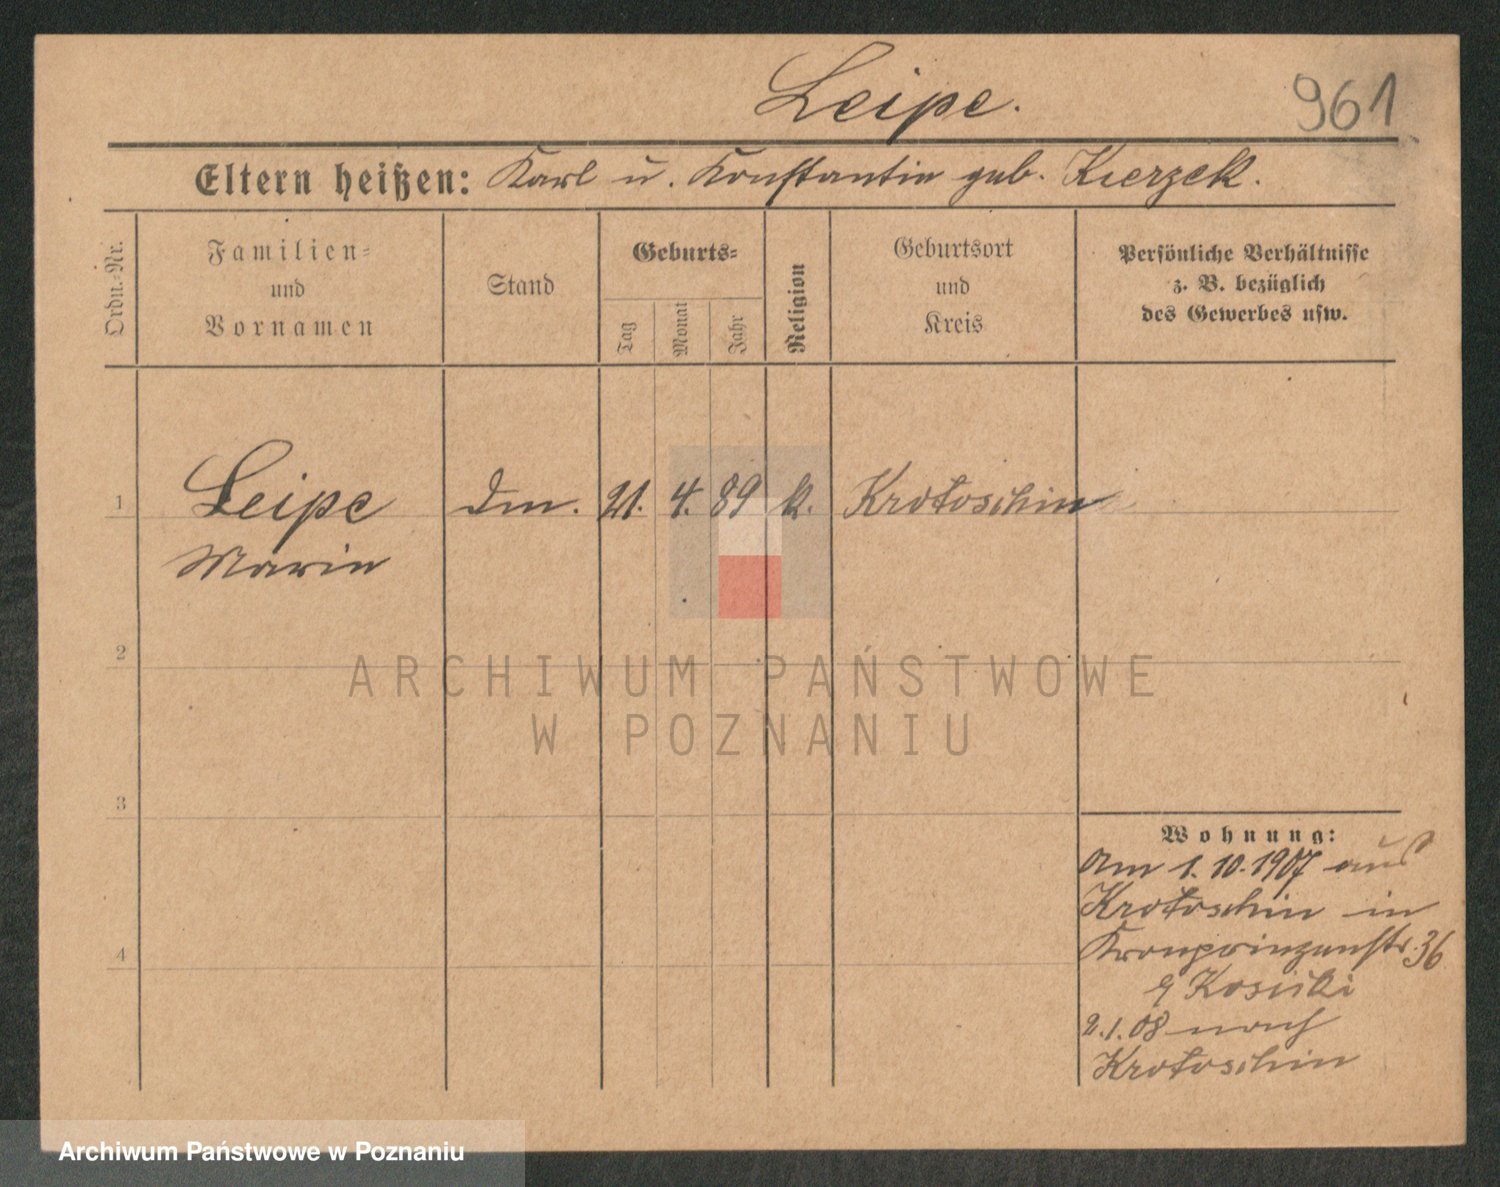 Leipe.
961
Eltern heißen: Karl u. Konstantin geb. Kierzek.
Ordn.=Nr.
Familien=
und
Vornamen
Stand
Geburts=
Tag
Monat
Jahr
Religion
Geburtsort
und
Kreis
Persönliche Verhältnisse
z. B. bezüglich
des Gewerbes usw.
1 Leipe Dm. 21. 4. 89 k. Krotoschin
Marie
2
3
4
Wohnung:
Am 1.10.1907 aus
Krotoschin in
Kronprinzenstr. 36
2.1.08 nach
Krotoschin
ARCHIWUM PAŃSTWOWE
W POZNANIU
Archiwum Państwowe w Poznaniu